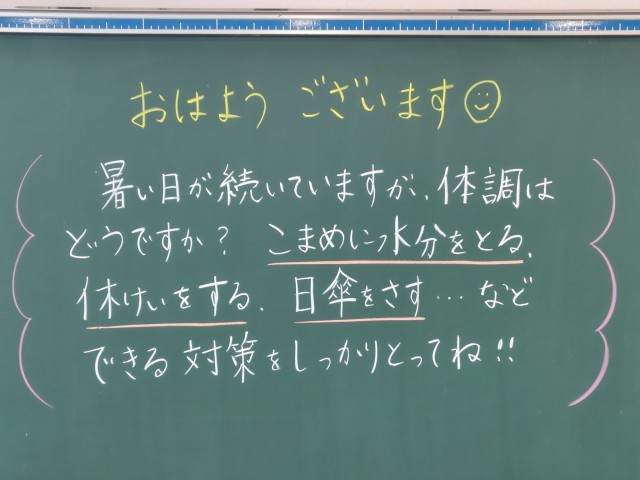 おはよう ございます
暑い日が続いていますが、体調は
どうですか? こまめに水分をとる、
休けいをする、日傘をさす…など
できる対策をしっかりとってね!!